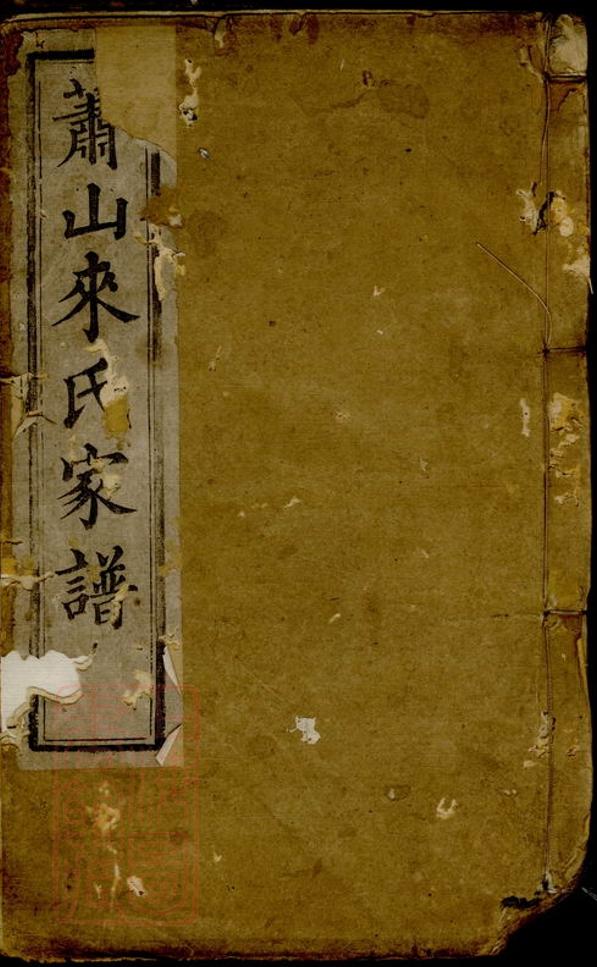 蕭山來氏家譜